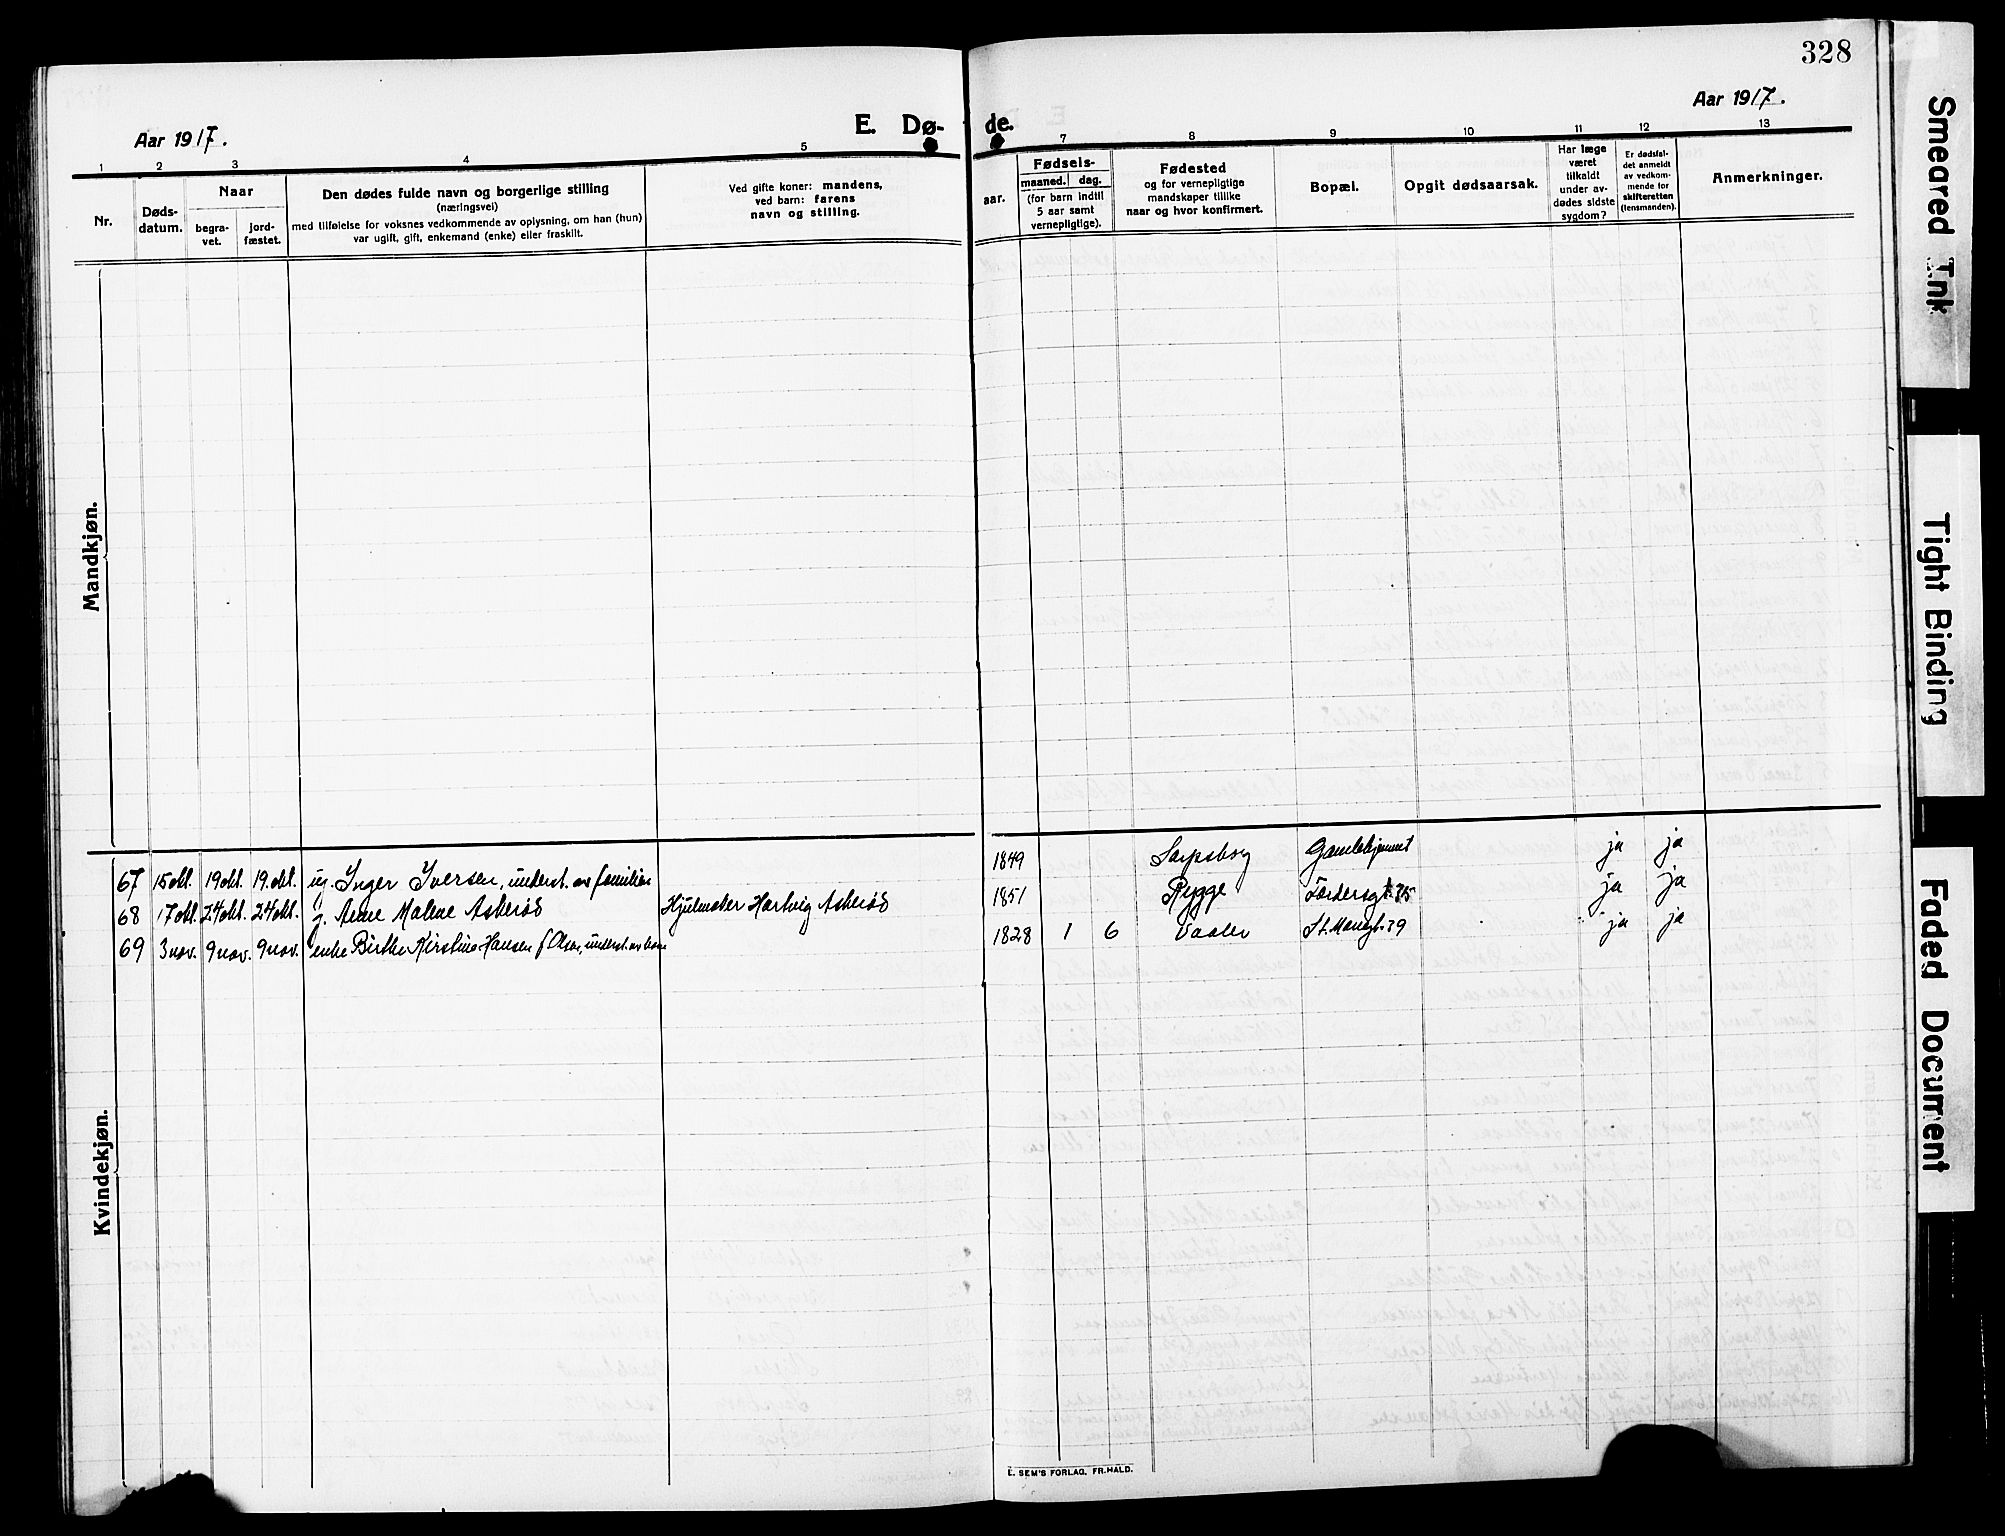 328
Aar 1917.
E. Dø-
de.
Aar 1917.
1 2 3 4 5 7 8 9 10 11 12 13
Nr.
Døds-
datum.
Naar
begra-
vet.
jord-
fæstet.
Den dødes fulde navn og borgerlige stilling
(næringsvei)
med tilføielse for voksnes vedkommende av oplysning, om han (hun)
var ugift, gift, enkemand (enke) eller fraskilt.
Ved gifte koner: mandens,
ved barn: farens
navn og stilling.
aar.
Fødsels-
maaned. dag.
(for barn indtil
5 aar samt
vernepligtige).
Fødested
og for vernepligtige
mandskaper tillike
naar og hvor konfirmert.
Bopæl.
Opgit dødsaarsak.
Har læge
været
tilkaldt
under av-
dødes sidste
sygdom?
Er dødsfal-
det anmeldt
av vedkom-
mende for
skifteretten
(lensmanden).
Anmerkninger.
Mandkjøn.
Kvindekjøn.
67 15 okt. 19 okt. 19. okt. ug. Inger Iversen, underst. av familien 1849 Sarpsborg Gamlehjemmet ja ja
68 17 okt. 24 okt. 24 okt. g. Anne Malene Askerød Hjulmaker Hartvig Askerød 1851 Rygge ja ja
69 3 nov. 9 nov. 9 nov. enke Birthe Kirstine Hansen f Olsen, underst. av 1828 1 6 Vaaler St. Mariegt. 39 ja ja
E. SEM'S FORLAG, FR.HALD.
Smeared Ink
Tight Binding
Faded Document